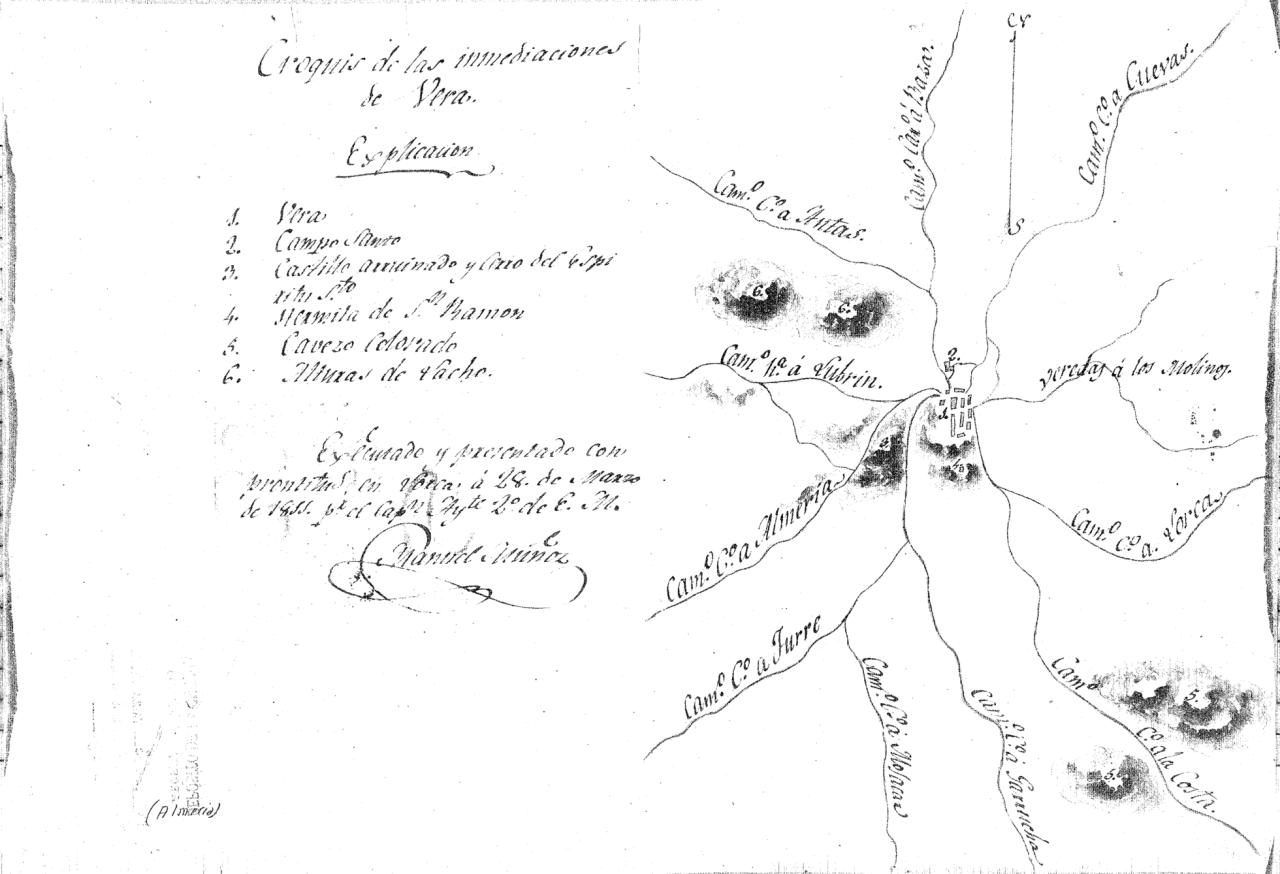 Croquis de las inmediaciones
de Vera.
Explicacion
1. Vera
2. Campo Santo
3. Castillo arruinado y Cerro del Espi
ritu S.to
4. Hermita de S.n Ramon
5. Cavezo Colorado
6. Alturas de
Executado y presentado con
prontitud, en á 28. de Marzo
de 1811. p.r el Cap.n Ayte 2.º de E. M.
Manuel Muñoz
(Almeria)
N
S
Cam.º á Baza.
Cam.º C.º a Cuevas.
Cam.º C.º a Antas.
6.
6.
Cam.º h.a á Lubrin.
2.
1.
Veredas á los Molinos.
3.
4.
Cam.º C.º a Almeria
Cam.º C.º a. Lorca
Cam.º C.º a Turre
Cam.º C.º á Mojacar
Cam.º C.º á Garrucha
Cam.º
C.º a la Costa.
5.
5.